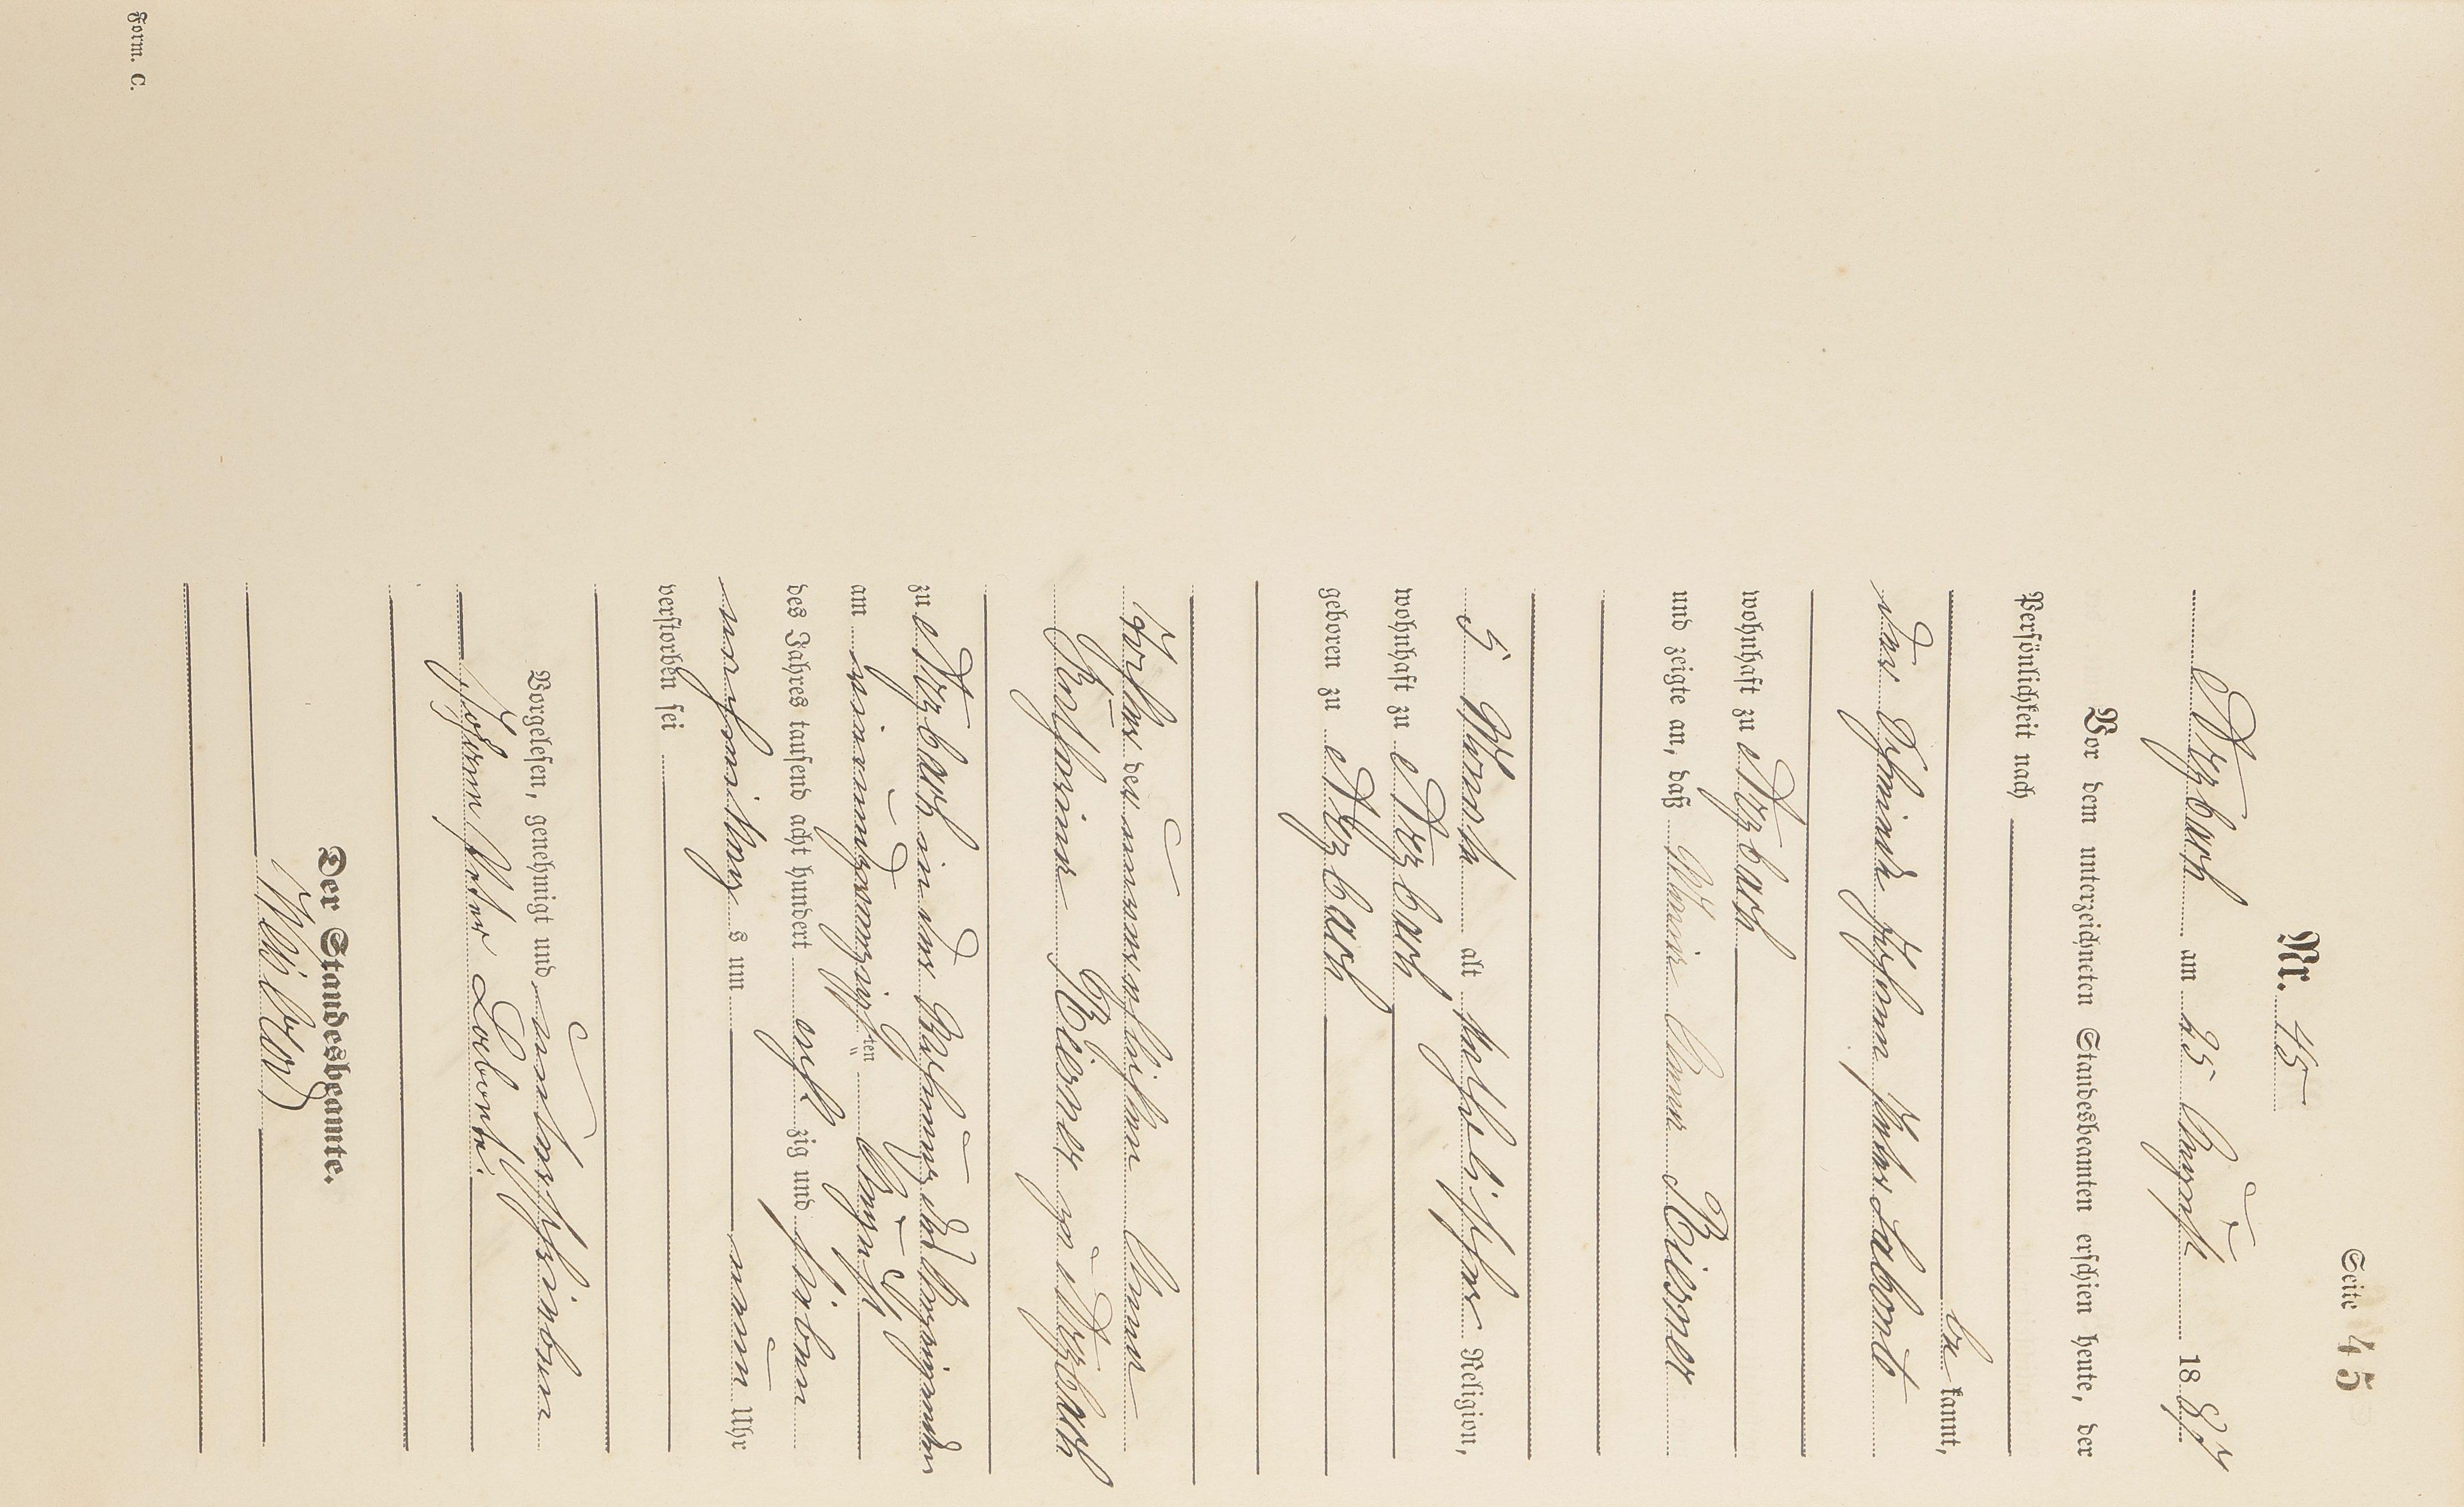 Seite 45
Nr. 45
Arzbach am 25 August 1887
Vor dem unterzeichneten Standesbeamten erschien heute, der
Persönlichkeit nach
be kannt,
der Schmied Johann Peter Labonte
wohnhaft zu Arzbach
und zeigte an, daß Maria Anna Meisner
5 Monate alt katholischer Religion,
wohnhaft zu Arzbach
geboren zu Arzbach
Tochter der unverehelichten Anna
Katharina Meisner zu Arzbach
zu Arzbach in der Behausung des Anzeigenden
am vierundzwanzigsten August
des Jahres tausend acht hundert acht zig und sieben
vormittags um neun Uhr
verstorben sei
Vorgelesen, genehmigt und unterschrieben
Johann Peter Labonte.
Der Standesbeamte.
Form. C.